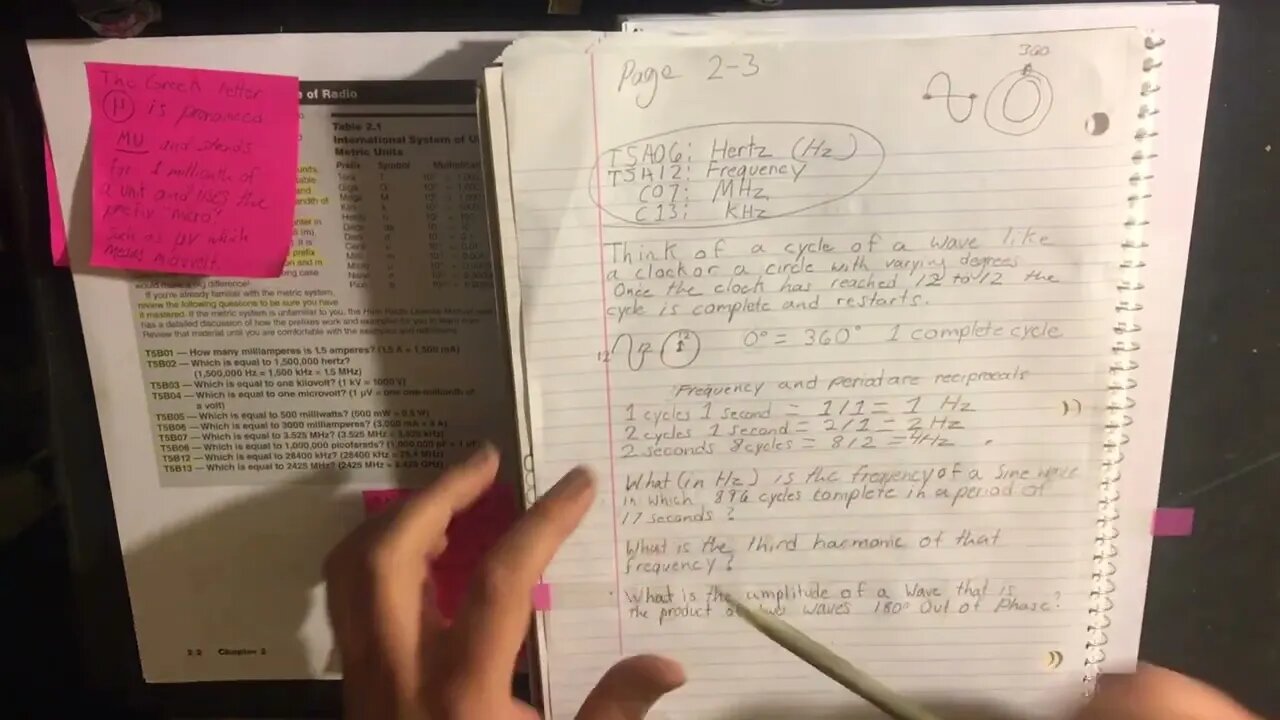 The Greek letter
μ is pronounced
MU and stands
for 1 millionth of
a unit and uses the
prefix "micro"
such as μV which
means microvolt.
e of Radio
Table 2.1
International System of U
Metric Units
Prefix Symbol
Tera T
Giga G
Mega M
would make a big difference!
If you're already familiar with the metric system,
review the following questions to be sure you have
it mastered. If the metric system is unfamiliar to you, the
has a detailed discussion of how the prefixes work and
Review that material until you are comfortable with the
T5B01 — How many milliamperes is 1.5 amperes? (1.5 A = 1,500 mA)
T5B02 — Which is equal to 1,500,000 hertz?
(1,500,000 Hz = 1,500 kHz = 1.5 MHz)
T5B03 — Which is equal to one kilovolt? (1 kV = 1000 V)
T5B04 — Which is equal to one microvolt? (1 μV = one one-millionth of
a volt)
T5B05 — Which is equal to 500 milliwatts? (500 mW = 0.5 W)
T5B06 — Which is equal to 3000 milliamperes? (3,000 mA = 3 A)
T5B07 — Which is equal to 3.525 MHz? (3.525 MHz = 3,525 kHz)
T5B08 — Which is equal to 1,000,000 picofarads?
T5B12 — Which is equal to 28400 kHz? (28400 kHz = 28.4 MHz)
T5B13 — Which is equal to 2425 MHz? (2425 MHz = 2.425 GHz)
2-2 Chapter 2
Page 2-3
360
T5A06: Hertz (Hz)
T5A12: Frequency
C07: MHz
C13: kHz
Think of a cycle of a wave like
a clock or a circle with varying degrees.
Once the clock has reached 12 to 12 the
cycle is complete and restarts.
12 12 0° = 360° 1 complete cycle
Frequency and period are reciprocals
1 cycles 1 second = 1/1 = 1 Hz
2 cycles 1 second = 2/1 = 2 Hz
2 seconds 8 cycles = 8/2 = 4Hz
What (in Hz) is the frequency of a sine wave
in which 896 cycles complete in a period of
17 seconds?
What is the third harmonic of that
frequency?
What is the amplitude of a wave that is
the product of two waves 180° out of phase?